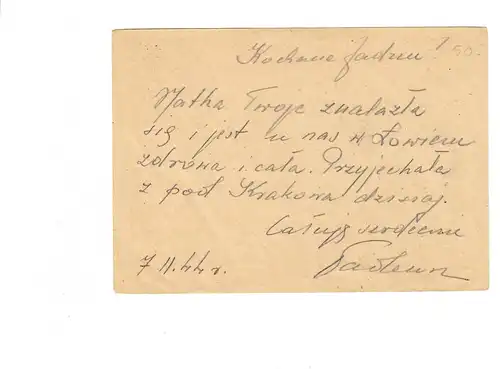 Kochane Jadziu! 50.-
Matka Twoje znalazła
się i jest u nas w Łowiczu
zdrowa i cała. Przyjechała
z pod Krakowa dzisiaj.
Całuję serdecznie
7 11.44 r. Tadeusz